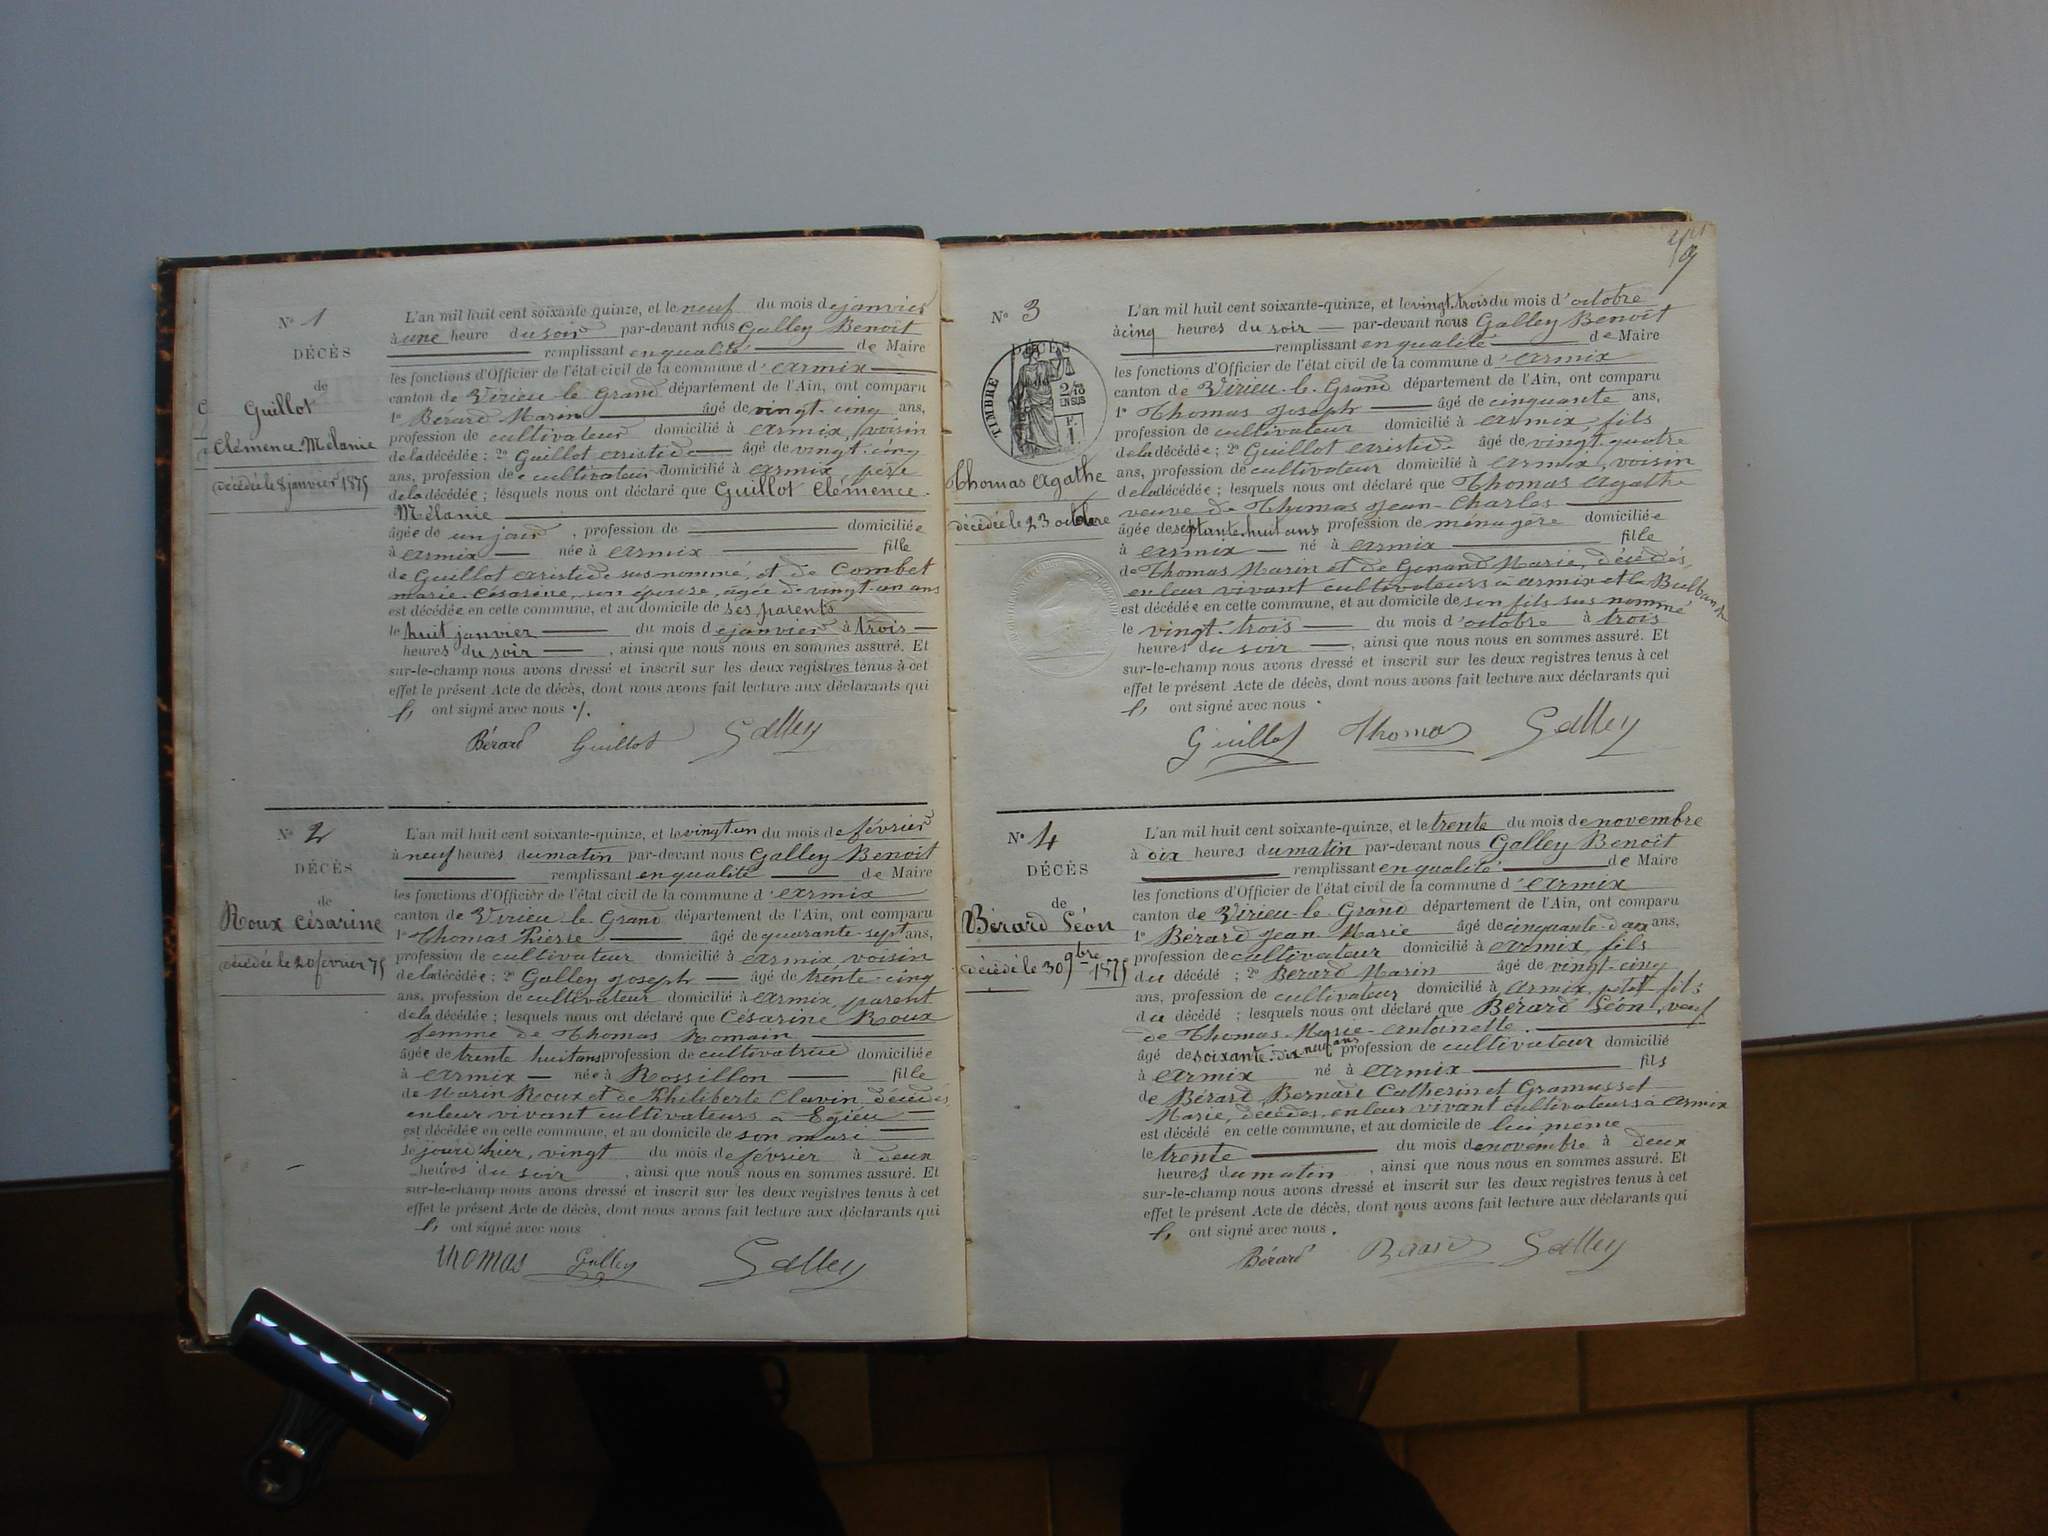 N° 1
DÉCÈS
de
Guillot
Clémence-Mélanie
décédée le 8 janvier 1875
L'an mil huit cent soixante quinze, et le neuf du mois de janvier
à une heure du soir par-devant nous Galley Benoît
remplissant en qualité de Maire
les fonctions d'Officier de l'état civil de la commune d'Armix
canton de Virieu-le-Grand département de l'Ain, ont comparu
1° Bérard Marin âgé de vingt-cinq ans,
profession de cultivateur domicilié à Armix, voisin
de la décédée ; 2° Guillot Aristide âgé de vingt-cinq
ans, profession de cultivateur domicilié à Armix, père
de la décédée ; lesquels nous ont déclaré que Guillot Clémence-
Mélanie
âgée de un jour, profession de domiciliée
à Armix née à Armix fille
de Guillot Aristide susnommé, et de Combet
Marie-Césarine, son épouse, âgée de vingt-un ans
est décédée en cette commune, et au domicile de ses parents
le huit janvier du mois de janvier à trois
heures du soir, ainsi que nous nous en sommes assuré. Et
sur-le-champ nous avons dressé et inscrit sur les deux registres tenus à cet
effet le présent Acte de décès, dont nous avons fait lecture aux déclarants qui
ont signé avec nous ./.
Bérard Guillot Galley
N° 2
DÉCÈS
de
Roux Césarine
décédée le 20 février 75
L'an mil huit cent soixante-quinze, et le vingt un du mois de février
à neuf heures du matin par-devant nous Galley Benoît
remplissant en qualité de Maire
les fonctions d'Officier de l'état civil de la commune d'Armix
canton de Virieu-le-Grand département de l'Ain, ont comparu
1° Thomas Pierre âgé de quarante-sept ans,
profession de cultivateur domicilié à Armix voisin
de la décédée ; 2° Galley Joseph âgé de trente-cinq
ans, profession de cultivateur domicilié à Armix, parent
de la décédée ; lesquels nous ont déclaré que Césarine Roux
femme de Thomas Romain
âgée de trente huit ans profession de cultivatrice domiciliée
à Armix née à Rossillon fille
de Marin Roux et de Philiberte Clavin décédés,
en leur vivant cultivateurs à Egieu
est décédée en cette commune, et au domicile de son mari
le jour d'hier, vingt du mois de février à deux
heures du soir, ainsi que nous nous en sommes assuré. Et
sur-le-champ nous avons dressé et inscrit sur les deux registres tenus à cet
effet le présent Acte de décès, dont nous avons fait lecture aux déclarants qui
ont signé avec nous
Thomas Galley Galley
N° 3
DÉCÈS
TIMBRE
2/10
EN SUS
F.
1.
Thomas Agathe
décédée le 23 octobre
L'an mil huit cent soixante-quinze, et le vingt-trois du mois d'octobre
à cinq heures du soir par-devant nous Galley Benoît
remplissant en qualité de Maire
les fonctions d'Officier de l'état civil de la commune d'Armix
canton de Virieu-le-Grand département de l'Ain, ont comparu
1° Thomas Joseph âgé de cinquante ans,
profession de cultivateur domicilié à Armix, fils
de la décédée ; 2° Guillot Aristide âgé de vingt-quatre
ans, profession de cultivateur domicilié à Armix, voisin
de la décédée ; lesquels nous ont déclaré que Thomas Agathe
veuve de Thomas Jean-Charles
âgée de septante-huit ans profession de ménagère domiciliée
à Armix né à Armix fille
de Thomas Marin et de Genand Marie, décédés,
en leur vivant cultivateurs à Armix et la
est décédée en cette commune, et au domicile de son fils sus nommé
le vingt-trois du mois d'octobre à trois
heures du soir, ainsi que nous nous en sommes assuré. Et
sur-le-champ nous avons dressé et inscrit sur les deux registres tenus à cet
effet le présent Acte de décès, dont nous avons fait lecture aux déclarants qui
ont signé avec nous.
Guillot Thomas Galley
N° 4
DÉCÈS
de
Bérard Léon
décédé le 30 9bre 1875
L'an mil huit cent soixante-quinze, et le trente du mois de novembre
à dix heures du matin par-devant nous Galley Benoît
remplissant en qualité de Maire
les fonctions d'Officier de l'état civil de la commune d'Armix
canton de Virieu-le-Grand département de l'Ain, ont comparu
1° Bérard Jean-Marie âgé de cinquante-deux ans,
profession de cultivateur domicilié à Armix, fils
du décédé ; 2° Bérard Marin âgé de vingt-cinq
ans, profession de cultivateur domicilié à Armix, petit-fils
du décédé ; lesquels nous ont déclaré que Bérard Léon, veuf
de Thomas Marie-Antoinette.
âgé de soixante-dix neuf ans profession de cultivateur domicilié
à Armix né à Armix fils
de Bérard Bernard Catherin et Gramusset
Marie, décédés, en leur vivant cultivateurs à Armix
est décédé en cette commune, et au domicile de lui même
le trente du mois de novembre à deux
heures du matin, ainsi que nous nous en sommes assuré. Et
sur-le-champ nous avons dressé et inscrit sur les deux registres tenus à cet
effet le présent Acte de décès, dont nous avons fait lecture aux déclarants qui
ont signé avec nous.
Bérard Galley